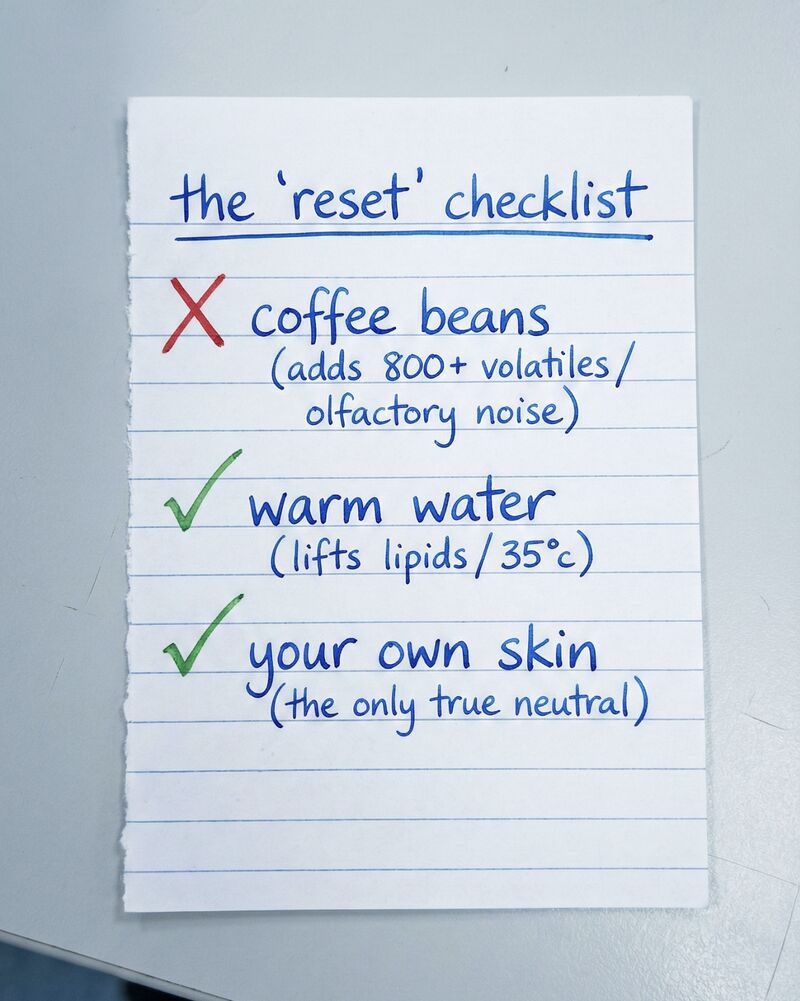 the 'reset' checklist
coffee beans
(adds 800+ volatiles/
olfactory noise)
warm water
(lifts lipids/35°c)
your own skin
(the only true neutral)